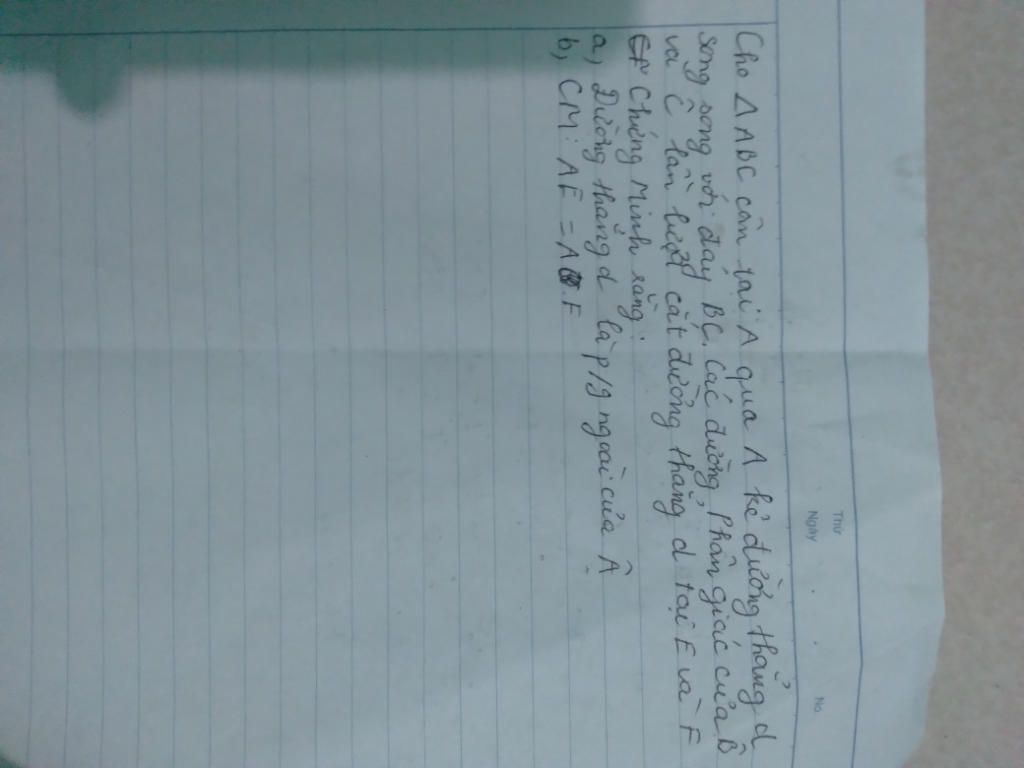 Thứ
Ngày
No
Cho Δ ABC cân tại A qua A kẻ đường thẳng d
song song với đáy BC. Các đường phân giác của B̂
và Ĉ lần lượt cắt đường thẳng d tại E và F
Chứng minh rằng:
a, Đường thẳng d là p/g ngoài của Â
b, CM: AE = A F